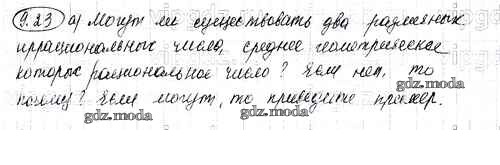 9.23 а) Могут ли существовать два различных
иррациональных числа, среднее геометрическое
которых рациональное число? Если нет, то
почему? Если могут, то приведите пример.
gdz.moda
gdz.moda
gdz.moda